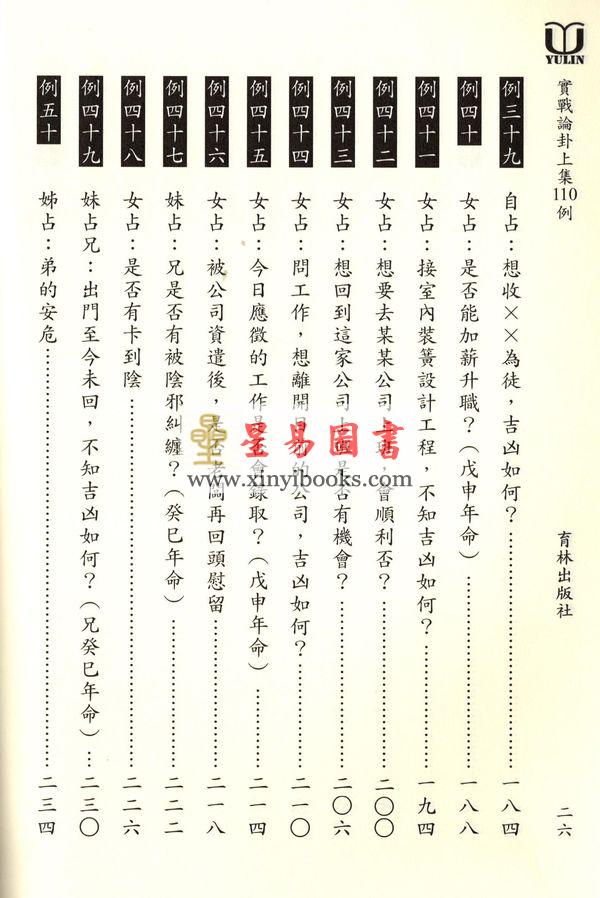 YULIN
實戰論卦上集110例
育林出版社
二六
例三十九 自占：想收××為徒，吉凶如何？⋯⋯一八四
例四十 女占：是否能加薪升職？（戊申年命）⋯⋯一八八
例四十一 女占：接室內裝簧設計工程，不知吉凶如何？⋯⋯一九四
例四十二 女占：想要去某某公司上班，會順利否？⋯⋯二〇〇
例四十三 女占：想回到這家公司上班是否有機會？⋯⋯二〇六
例四十四 女占：問工作，想離開目前的公司，吉凶如何？⋯⋯二一〇
例四十五 女占：今日應徵的工作是否會錄取？（戊申年命）⋯⋯二一四
例四十六 女占：被公司資遣後，是否老闆再回頭慰留⋯⋯二一八
例四十七 妹占：兄是否有被陰邪糾纏？（癸巳年命）⋯⋯二二二
例四十八 女占：是否有卡到陰⋯⋯二二六
例四十九 妹占兄：出門至今未回，不知吉凶如何？（兄癸巳年命）⋯二三〇
例五十 姊占：弟的安危⋯⋯二三四
星易圖書
www.xinyibooks.com